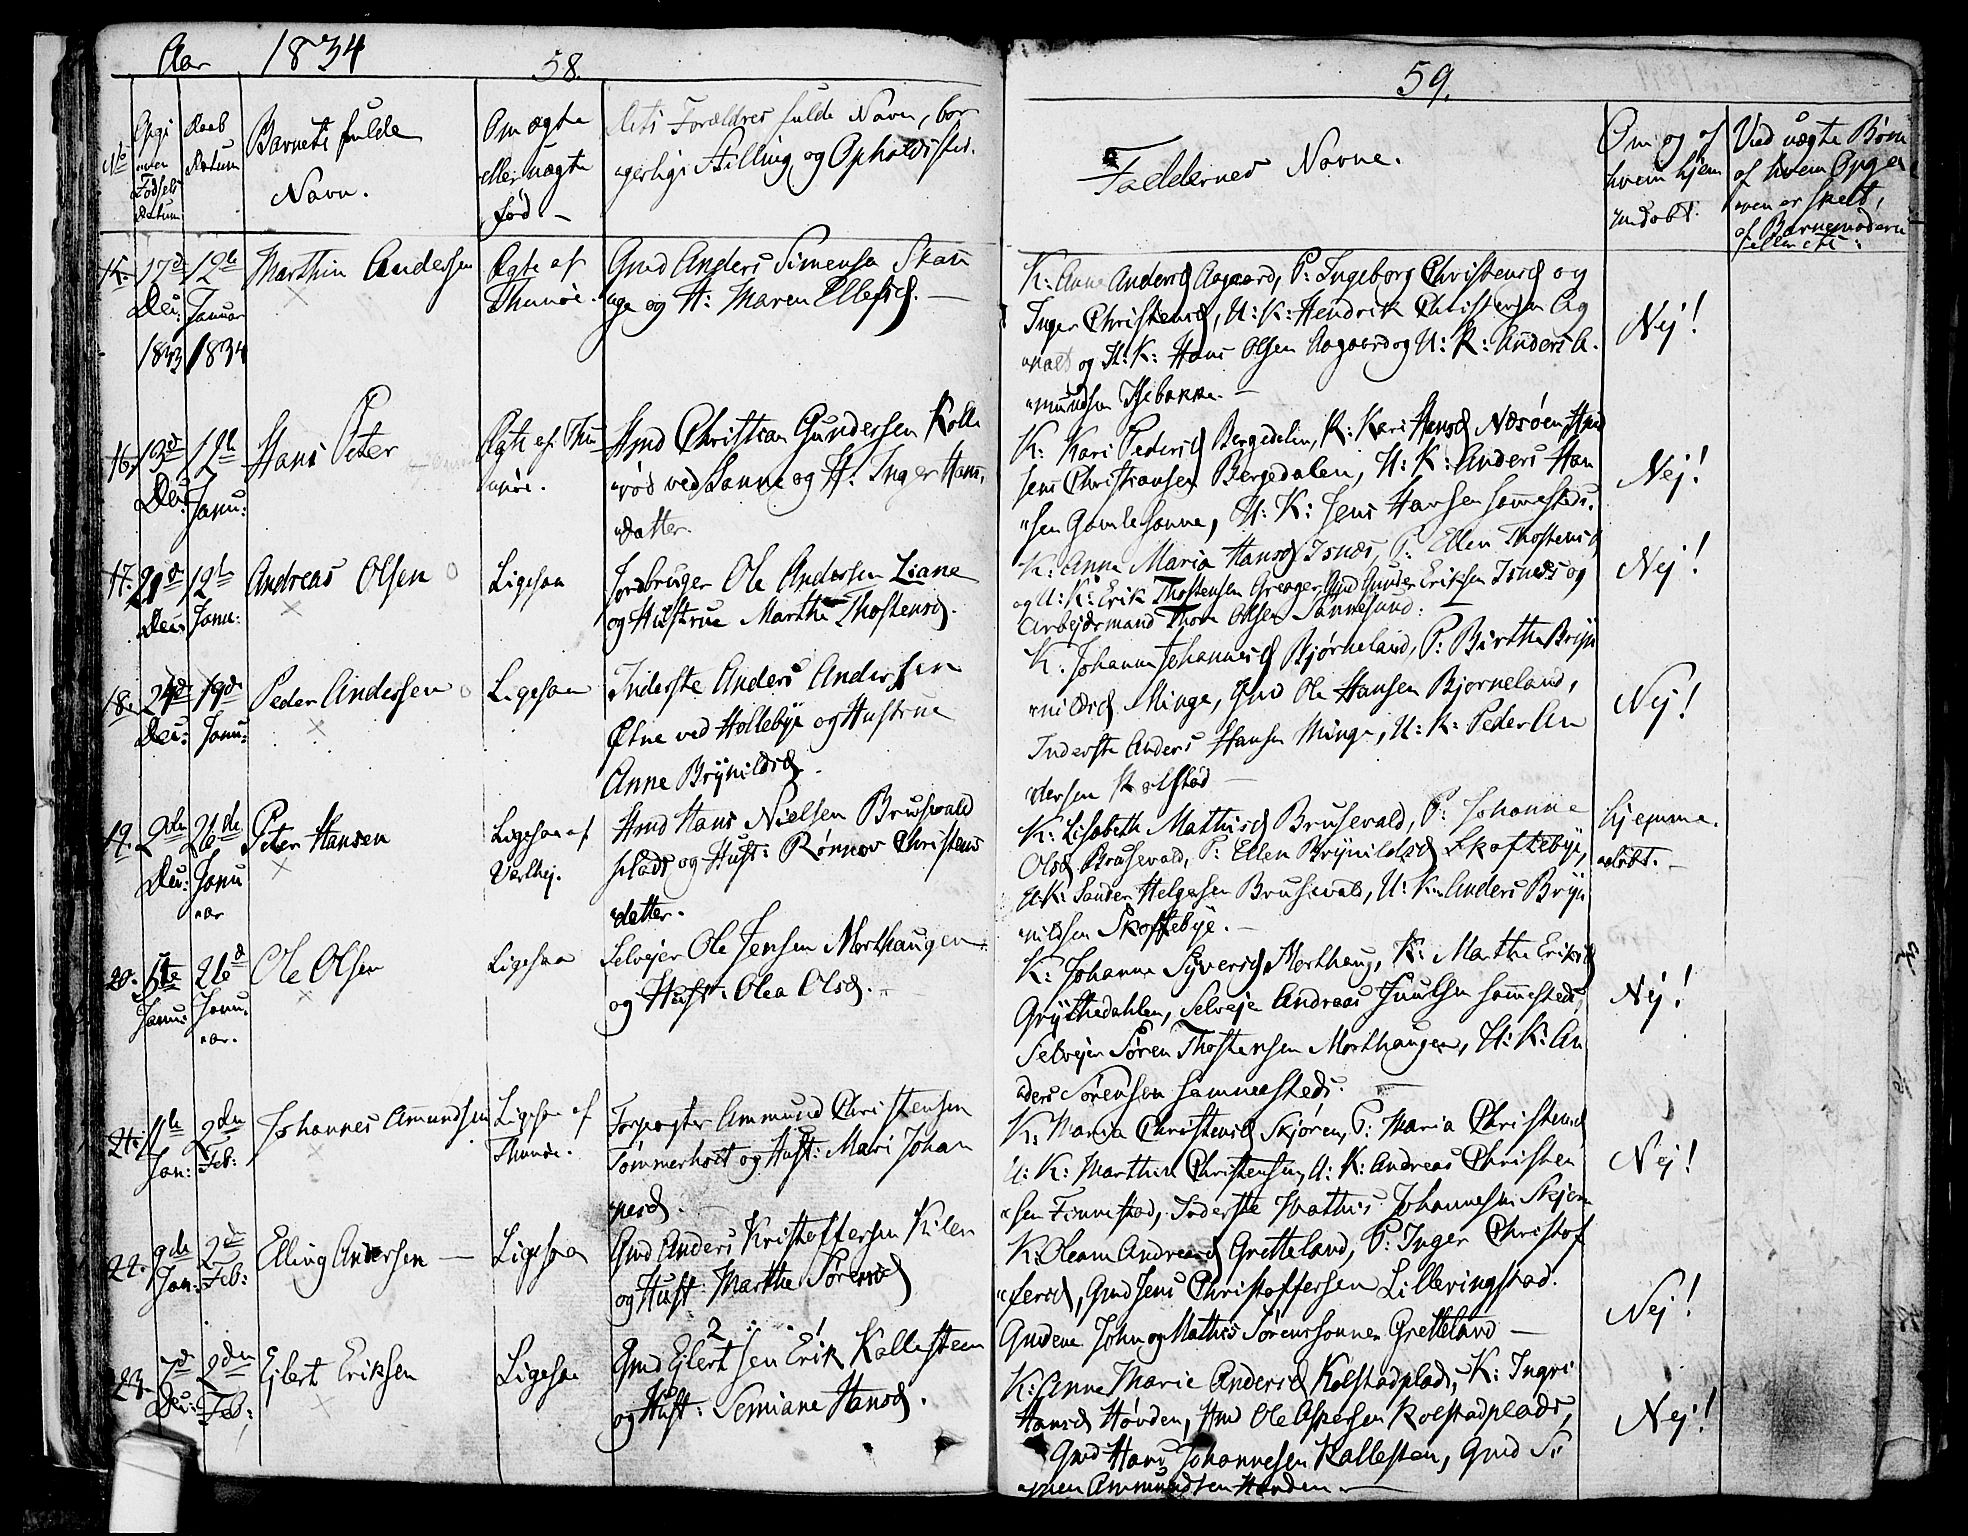 Aar 1834
58.
No
Opgi
ven
Fødsels
Datum
Daab
Datum
Barnets fulde
Navn.
Om ægte
eller uægte
fød. –
Dets Forældres fulde Navn, bor
"gerlige Stilling og Opholdssted.
15. 17d 12te Marthin Andersen Ægte af Gmd Anders Simensen Skan
Dec: Januar Thunøe. "ge og H: Maren Ellefsd. —
1833 1834
16. 13d 12te Hans Peter Ægte af Thu Hmd Christian Gundersen Kolle
Dec: Janu: "nøe. "rød ved Sanne og H. Inger Hans,
"datter.
17. 21d 12te Andreas Olsen Ligesaa Jordbruger Ole Andersen Liane
Dec: Janu: og Hustrue Marthe Thostensd.
18. 24d 19d Peder Andersen Ligesaa Inderste Anders Andersen
Dec: Janu: Øtne ved Hollebye og Hustrue
Anne Brynildsd.
19. 2den 26de Peter Hansen Ligesaa af Hmd Hans Nielsen Brusevald
Dec: Janu Varthej. plads og Hust: Rønnov Christens
"ar "datter.
20. 1te 26d Ole Olsen Ligesaa Selvejer Ole Jensen Morthaugen
Janu: Janu: og Hust: Olea Olsd. –
"ar.
21. 1te 2den Johannes Amundsen Ligesaa af Forpagter Ammund Christensen
Jan: Feb: Thunøe. Tømmerholt og Hust: Mari Johan
"nesd.
22. 9de 2d Elling Andersen — Ligesaa Gmd Anders Kristoffersen Kilen
Jan: Feb: og Hust Marthe Sørensd
23. 7d 2den Ejlert Eriksen Ligesaa Gmd Ejlert sen Erik Kallesteen
Dec: Feb: og Hust: Semiane Hansd.
59.
Faddernes Navne.
Om og af
hvem hjem
"medøbt.
Ved uægte Børn
af hvem Opgi
"ven er skeet,
af Barnemoderen
eller etc:
K: Anne Andersd Aagaard, P: Ingeborg Christensd og
Inger Christensd, U: K: Hendrik Christensen Ag
"nalt og U: K: Hans Olsen Aagaard og U: K: Anders A.
"mundsen Isebakke. —
Nej!
K: Kari Pedersd Bergedalen, K: Kari Hansd Næsøen, Hmd
Jens Christiansen Bergedalen, U: K: Anders Han
"sen Gamlesanne, U: K: Jens Hansen sammesteds.
Nej!
K: Anne Maria Hansd Isnæs, P: Ellen Thostensd,
og U: K: Erik Thostensen Greager Gmd Gunder Eriksen Isnæs og
Arbejdsmand Thore Olsen Sannesund.
Nej!
K. Johanne Johannesd Bjørneland, P: Birthe Bryn
"nildsd Minge, Gmd Ole Hansen Bjørneland,
Inderste Anders Hansen Minge, U: K: Peder An
"dersen Kolstad —
Nej!
K: Lisabeth Mathisd Brusevald, P: Johanne
Olsd Brusevald, P: Ellen Brynildsd Skoftebye,
U: K: Sander Helgesen Brusevald, U: K: Anders Bryn
"nildsen Skoftebye. —
hjemme.
"døbt. –
K: Johanne Syversd Morthaug, K: Marthe Eriksd
Grythedahlen, Selvejer Andreas Juulsen sammesteds,
Selvejer Søren Thostensen Morthaugen, U: K: An
"ders Sørensen sammesteds.
Nej!
K: Maria Christensd Skjøren, P: Maria Christensd
U: K: Marthin Christensen, U: K: Andreas Christen
"sen Finnestad, Inderste Mathis Johannesen Skjøren
Nej!
K: Oleana Andreasd Gretteland, P: Inger Christof
"fersd, Gmd Jens Christoffersen Lilleringstad.
Gmdene John og Mathis Sørenssønner Gretteland —
Nej!
K: Anne Marie Andersd Kolstadplads, K: Ingri
Hansd Hovden, Hmd Ole Aspersen Kolstadplads,
Gmd Hans Johannesen Kallesteen, Gmd Si
"men Ammundsen Hovden. —
Nej!